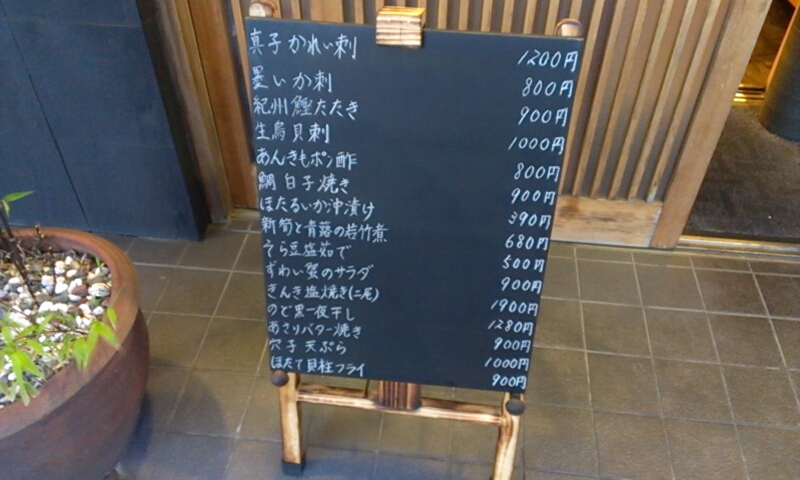 真子かれい刺 1200円
墨いか刺 800円
紀州鰹たたき 900円
生鳥貝刺 1000円
あんきもポン酢 800円
鯛白子焼き 900円
ほたるいか沖漬け 390円
新筍と青蕗の若竹煮 680円
そら豆塩茹で 500円
ずわい蟹のサラダ 900円
きんき塩焼き(二尾) 1900円
のど黒一夜干し 1280円
あさりバター焼き 900円
穴子天ぷら 1000円
ほたて貝柱フライ 900円